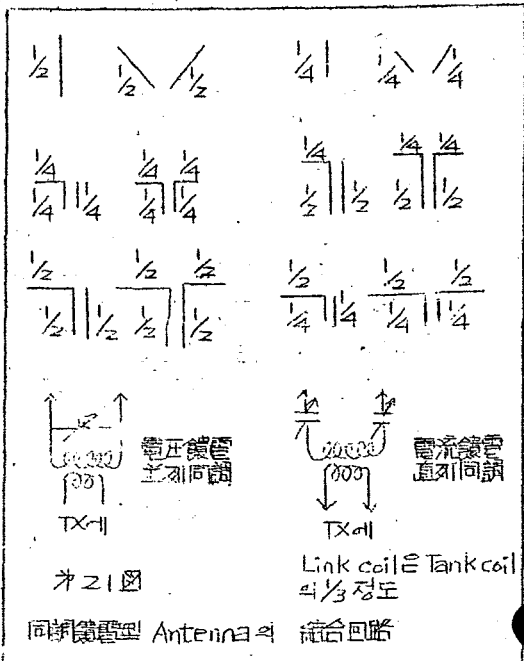 1/2 1/2 1/2 1/4 1/4 1/4
1/4 1/4 1/4 1/4 1/4 1/4
1/4 1/4 1/4 1/4 1/2 1/2 1/2 1/2
1/2 1/2 1/2 1/2 1/2 1/2
1/2 1/2 1/2 1/2 1/4 1/4 1/4 1/4
電圧饋電
並列同調
TX에
電流饋電
直列同調
TX에
Link coil은 Tank coil
의 1/3 정도
第21図
同調饋電型 Antenna의 結合回路